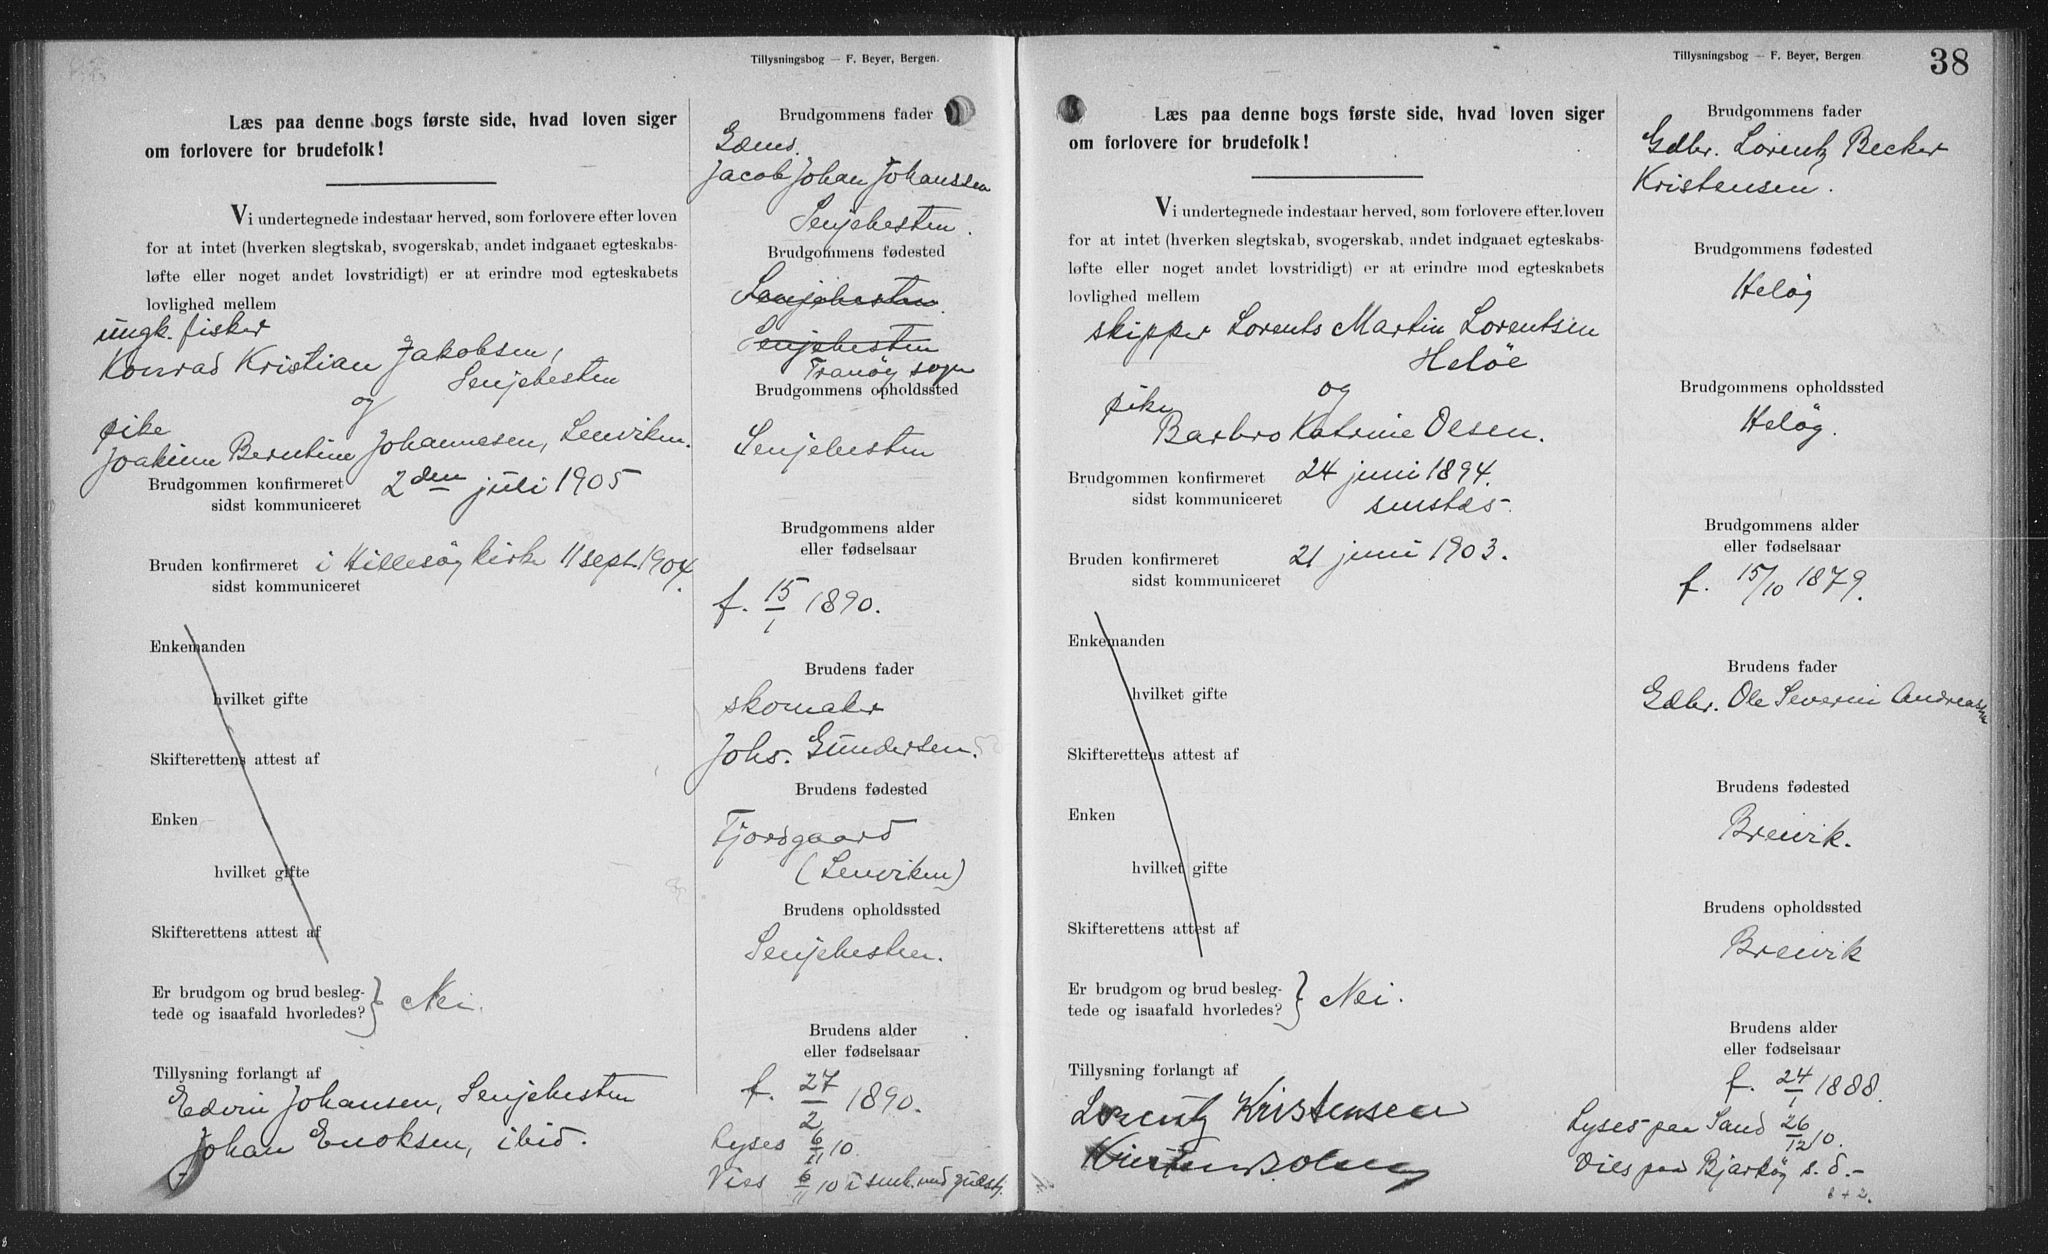 Tillysningsbog — F. Beyer, Bergen.
Læs paa denne bogs første side, hvad loven siger
om forlovere for brudefolk!
Vi undertegnede indestaar herved, som forlovere efter loven
for at intet (hverken slegtskab, svogerskab, andet indgaaet egteskabs-
løfte eller noget andet lovstridigt) er at erindre mod egteskabets
lovlighed mellem
ungk. fisker
Konrad Kristian Jakobsen,
Senjehesten
og
pike
Joakime Berntine Johannesen, Lenviken.
Brudgommen konfirmeret 2den juli 1905
sidst kommuniceret
Bruden konfirmeret i Hillesøy kirke 11 sept. 1904.
sidst kommuniceret
Enkemanden
hvilket gifte
Skifterettens attest af
Enken
hvilket gifte
Skifterettens attest af
Er brudgom og brud besleg-
tede og isaafald hvorledes? } Nei.
Tillysning forlangt af
Edvin Johansen, Senjehesten
Johan Enoksen, ibid.
Brudgommens fader
Gdms.
Jacob Johan Johanssen
Senjehesten.
Brudgommens fødested
Senjehesten.
Senjehesten
Tranøy sogn
Brudgommens opholdssted
Senjehesten
Brudgommens alder
eller fødselsaar
f. 15/1 1890.
Brudens fader
skomaker
Johs. Gundersen.
Brudens fødested
Fjordgaard
(Lenviken)
Brudens opholdssted
Senjehesten.
Brudens alder
eller fødselsaar
f. 27/2 1890.
Lyses 6/11 10
Vies 6/11 10 i smk. med gudstj.
Tillysningsbog — F. Beyer, Bergen
38
Læs paa denne bogs første side, hvad loven siger
om forlovere for brudefolk!
Vi undertegnede indestaar herved, som forlovere efter loven
for at intet (hverken slegtskab, svogerskab, andet indgaaet egteskabs-
løfte eller noget andet lovstridigt) er at erindre mod egteskabets
lovlighed mellem
skipper Lorents Martin Lorentsen
Heløe
og
pike
Barbro Katrine Olsen.
Brudgommen konfirmeret 24 juni 1894.
sidst kommuniceret
Bruden konfirmeret 21 juni 1903.
sidst kommuniceret
Enkemanden
hvilket gifte
Skifterettens attest af
Enken
hvilket gifte
Skifterettens attest af
Er brudgom og brud besleg-
tede og isaafald hvorledes? } Nei.
Tillysning forlangt af
Lorentz Kristensen
Brudgommens fader
Gdbr. Lorentz Becker
Kristensen.
Brudgommens fødested
Heløy
Brudgommens opholdssted
Heløy.
Brudgommens alder
eller fødselsaar
f. 15/10 1879.
Brudens fader
Gdbr. Ole Severin Andreassen
Brudens fødested
Breivik.
Brudens opholdssted
Breivik
Brudens alder
eller fødselsaar
f. 24/1 1888.
Lyses paa Sand 26/12 10.
Vies paa Bjarkøy s. d. -